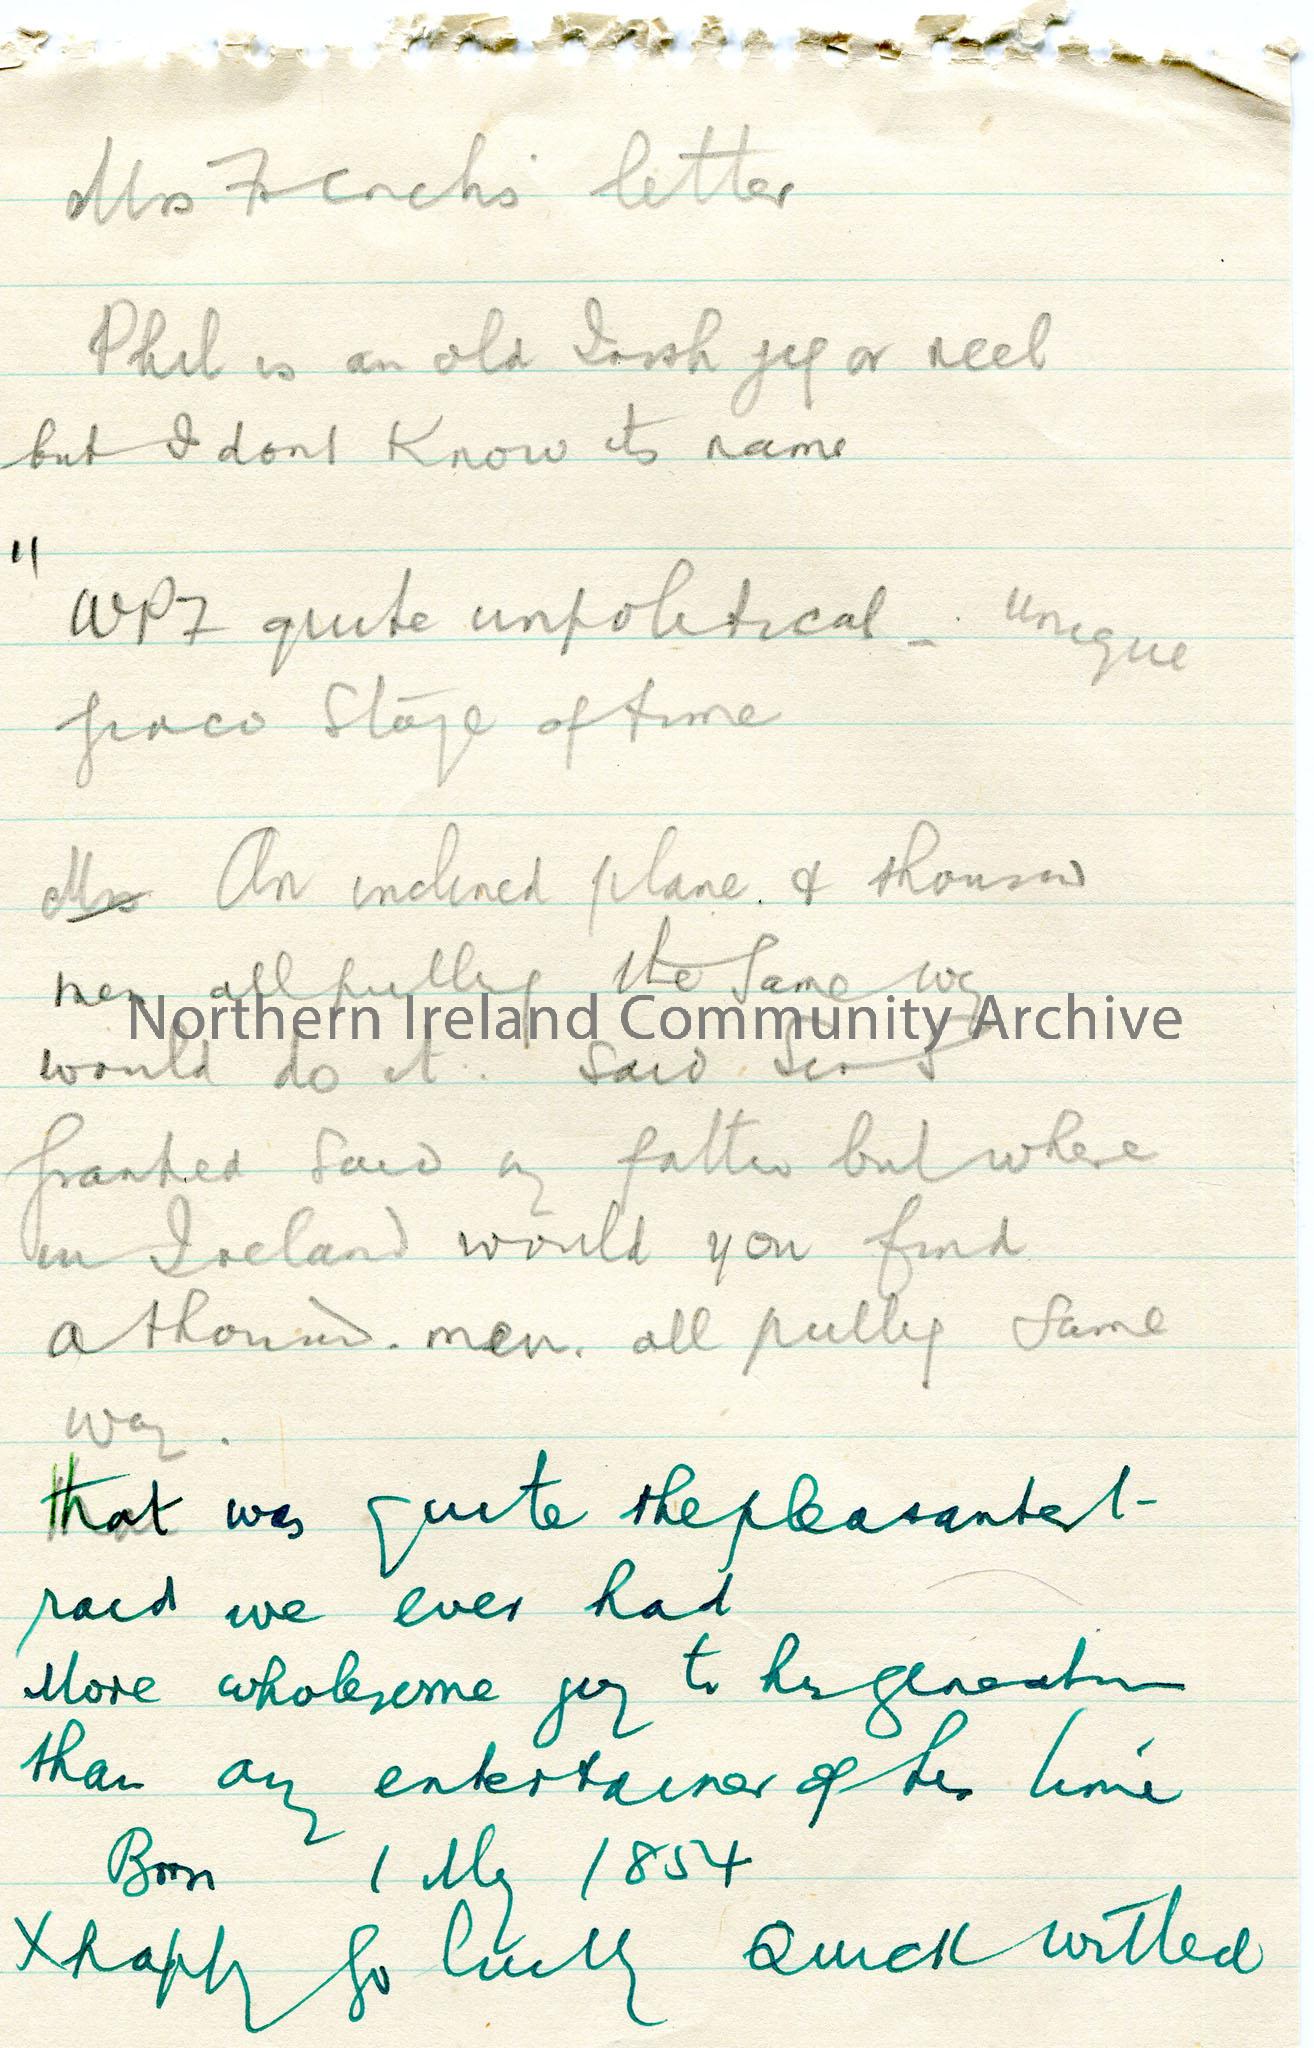 Mrs Frenchs' letter
Phil is an old Irish jig or reel
but I dont Know its name
"
WPF quite unpolitical - unique
Stage of time
Mrs An inclined plane & thousand
men all pulling the same way
would do it. Said
Granted said my father but where
in Ireland would you find
a thousand. men. all pulling same
way.
that was quite the pleasantest
raid we ever had
More wholesome joy to his generation
than any entertainer of his time
Born 1 May 1854
X happy Go lucky Quick witted
Northern Ireland Community Archive